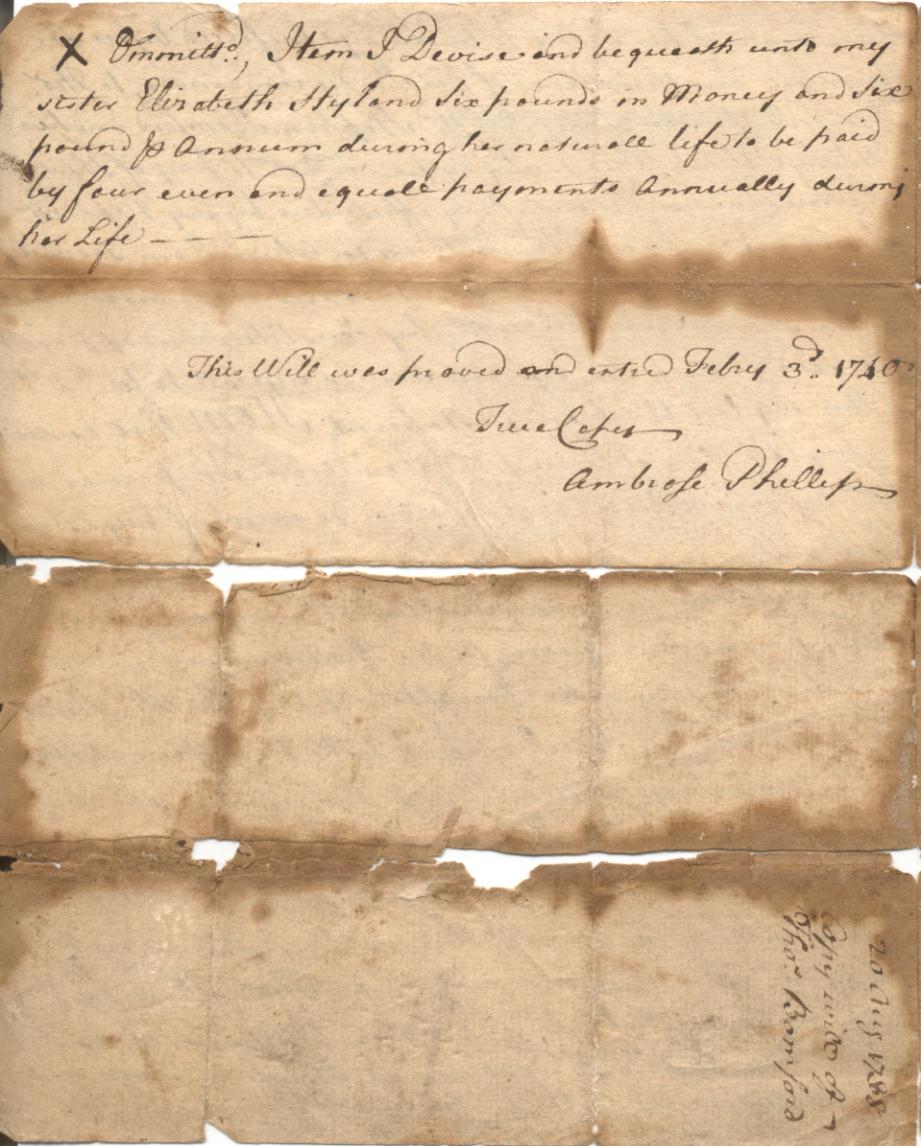 X Ommittd., Item I Devise and bequeath unto my
sister Elizabeth Hyland Six pounds in Money and Six
pound ⅌ Annum during her naturall life to be paid
by four even and equall payments Annually during
her Life
This Will was proved and entred Febry 3d. 1740
True Copy
Ambrose Phillips
20 Aug 1788
Copy will of
Thos. Bomford